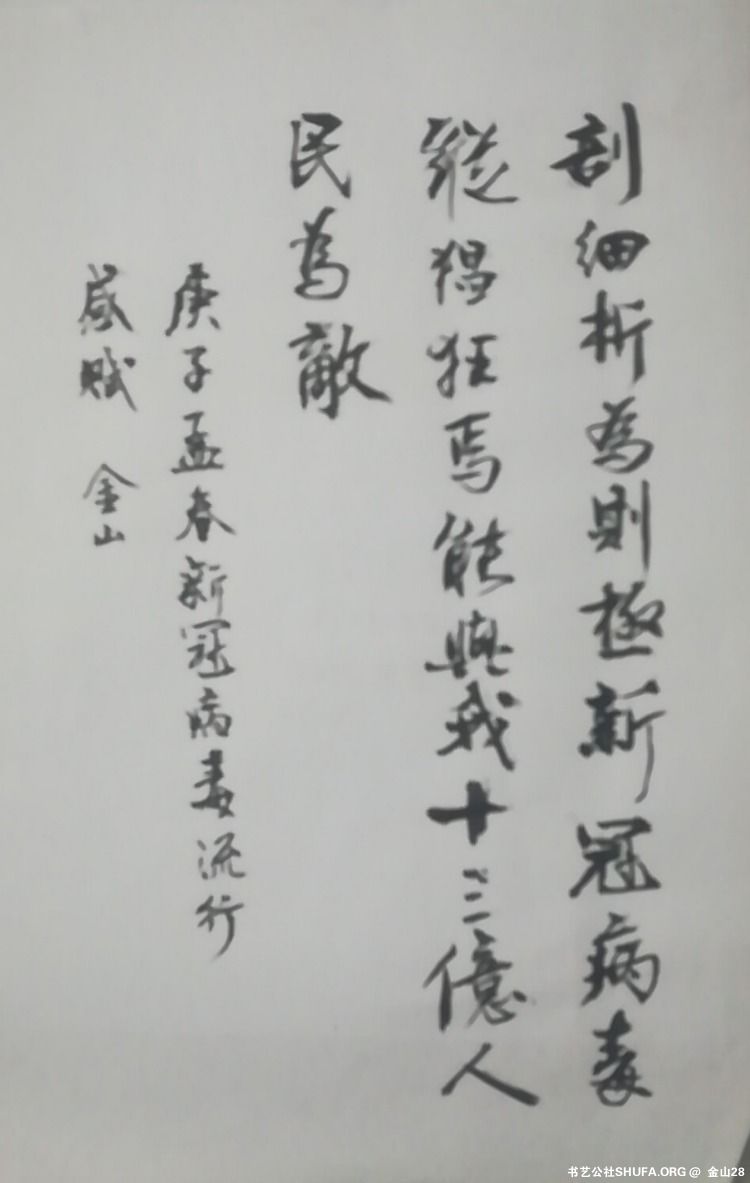 剖细析為則極新冠病毒
縱猖狂焉能與我十三億人
民為敵
庚子孟春新冠病毒流行
感賦 金山
书艺公社SHUFA.ORG @ 金山28